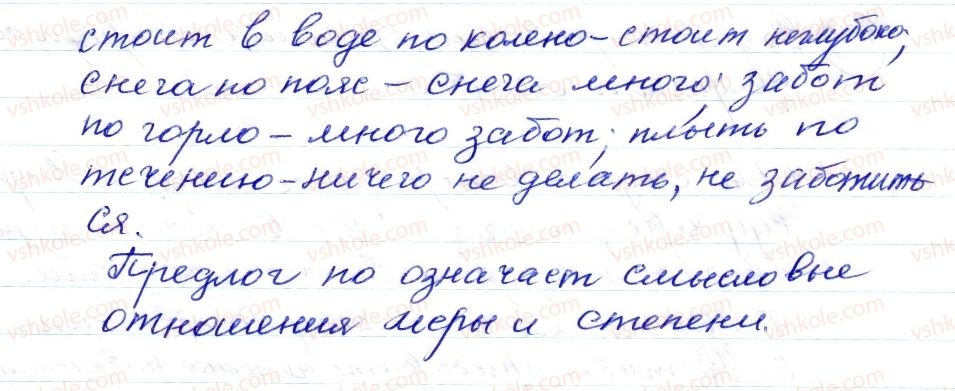 стоит в воде по колено - стоит неглубоко,
снега по пояс - снега много; забот
по горло - много забот; плыть по
течению - ничего не делать, не заботить
ся.
Предлог по означает смысловые
отношения меры и степени.